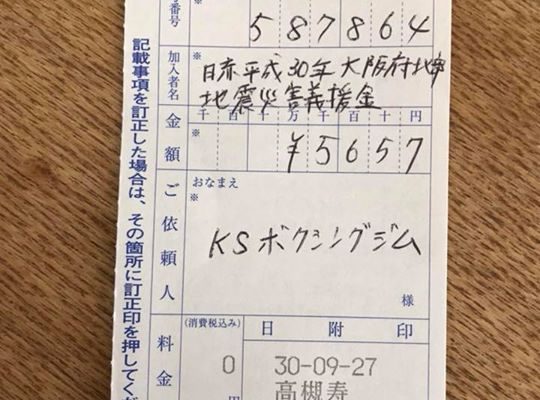 番号
※
587864
加入者名
※
日赤平成30年大阪府北部
地震災害義援金
金額
千 百 十 万 千 百 十 円
※
¥5657
ご依頼人
おなまえ
※
KSボクシングジム
様
料金
(消費税込み)
0
円
日附印
30-09-27
高槻寿
記載事項を訂正した場合は、その箇所に訂正印を押してくだ